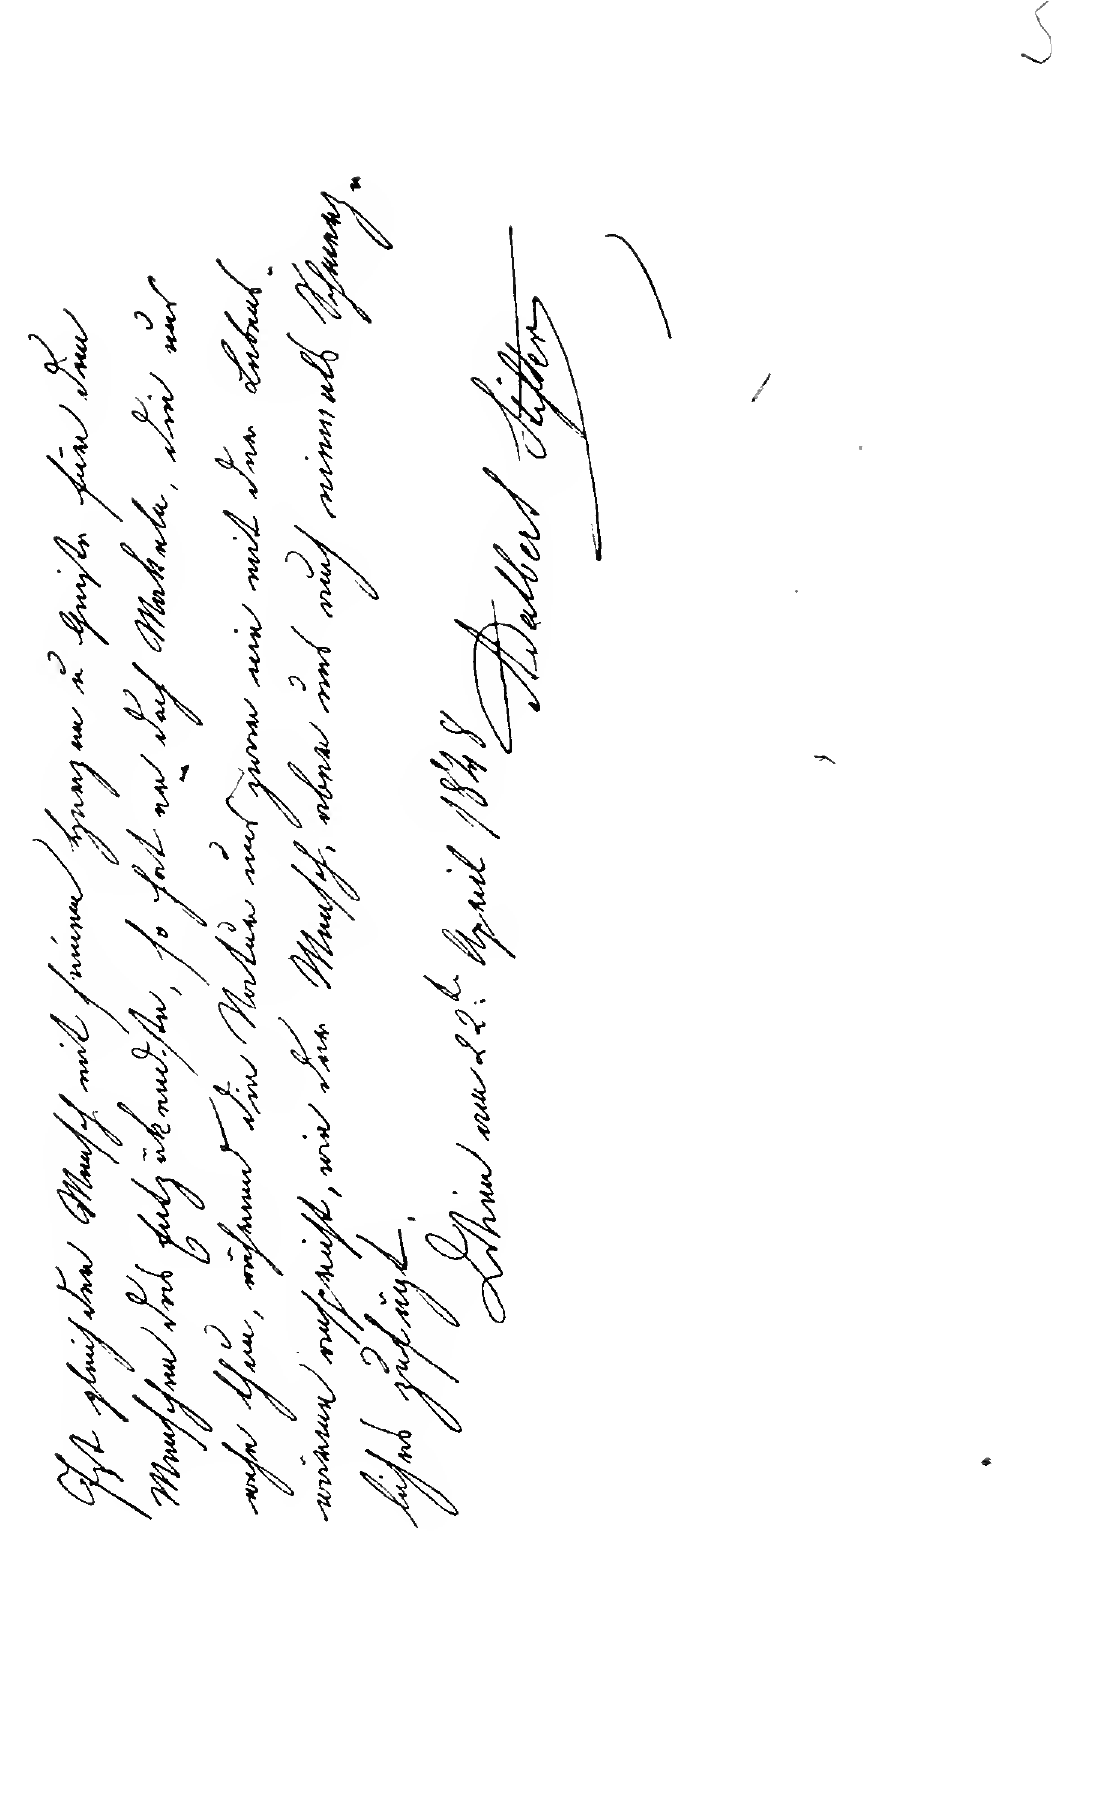 Ist gleich der Mensch mit seinem Herzen u Geiste für den
Menschen das Entzükendste, so hat er doch die uns
wehe thun, während die Natur uns zwar nie mit der Lebens-
wärme ergreift, wie der Mensch, aber uns auch niemals Schmerz-
liches zufügt.
Wien am 22t. April 1848
Adalbert Stifter